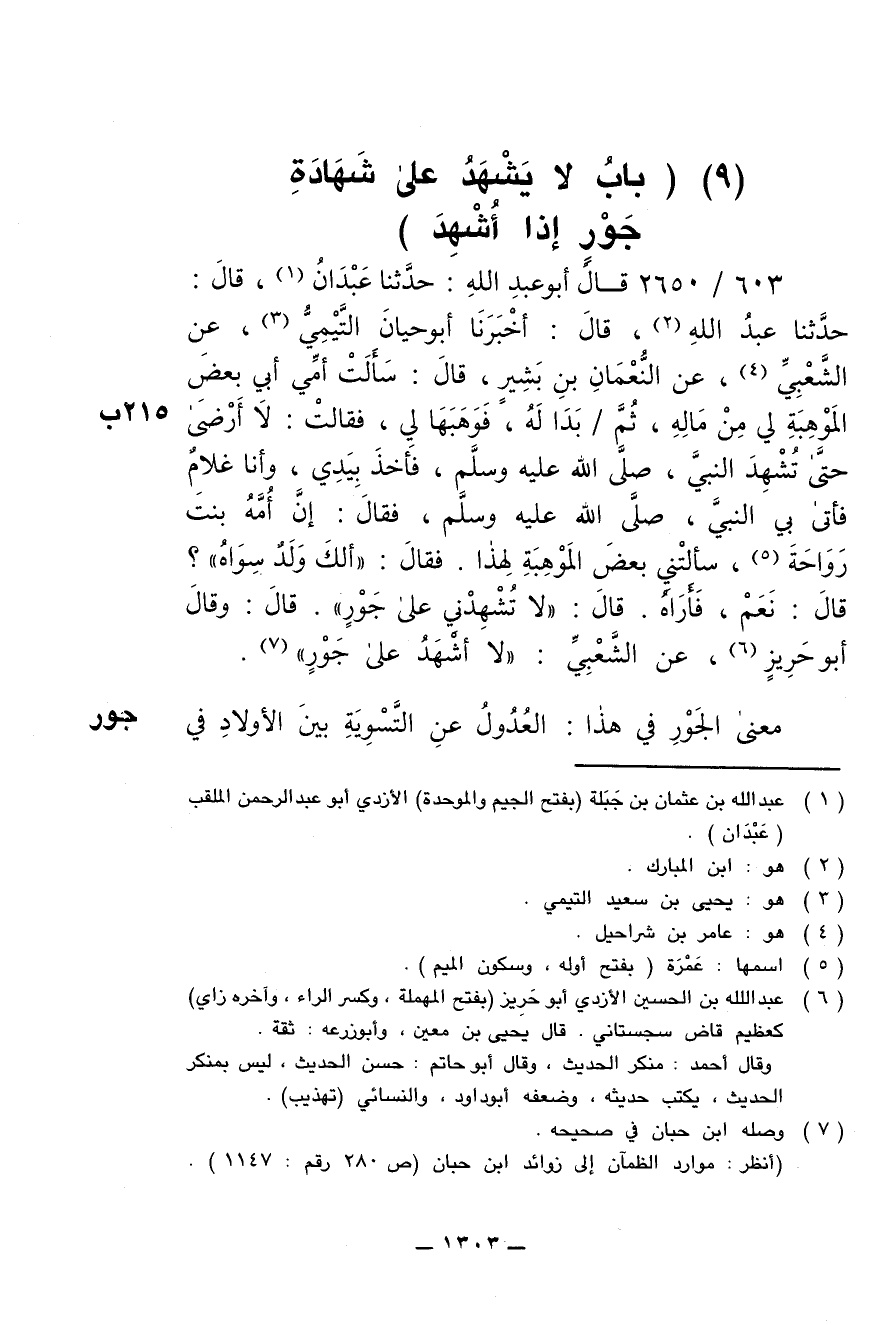 (٩) ( بابُ لا يَشْهَدُ علىٰ شَهَادَةِ
جَوْرٍ إذا أُشْهِدَ )
٦٠٣ / ٢٦٥٠ قـــالَ أبوعبدِ اللهِ : حدَّثنا عَبْدَانُ (١) ، قالَ :
حدَّثنا عبدُ اللهِ (٢) ، قالَ : أخْبَرَنَا أبوحيانَ التَّيْمِيُّ (٣) ، عن
الشَّعْبِيِّ (٤) ، عن النُّعْمَانِ بنِ بَشِيرٍ ، قالَ : سَأَلَتْ أمِّي أبي بعضَ
المَوْهِبَةِ لي مِنْ مَالِهِ ، ثُمَّ / بَدَا لَهُ ، فَوَهَبَهَا لي ، فقالتْ : لَا أَرْضىٰ
٢١٥ب
حتىَّٰ تُشْهِدَ النبيَّ ، صلَّى الله عليه وسلَّم ، فأخذَ بِيَدِي ، وأنا غلامٌ
فأتىٰ بي النبيَّ ، صلَّى الله عليه وسلَّم ، فقالَ : إنَّ أُمَّهُ بنتَ
رَوَاحَةَ (٥) ، سألتْني بعضَ المَوْهِبَةِ لهٰذا . فقالَ : «ألكَ وَلَدٌ سِوَاهُ» ؟
قالَ : نَعَمْ ، فَأَرَاهُ . قالَ : «لا تُشْهِدْني علىٰ جَوْرٍ» . قالَ : وقالَ
أبو حَرِيزٍ (٦) ، عن الشَّعْبِيِّ : «لا أشْهَدُ علىٰ جَوْرٍ» (٧) .
معنىٰ الجَوْرِ في هذٰا : العُدُولُ عنِ التَّسْوِيَةِ بينَ الأولادِ في
جور
( ١ ) عبدالله بن عثمان بن جَبَلة (بفتح الجيم والموحدة) الأزدي أبو عبدالرحمن الملقب
( عَبْدَان ) .
( ٢ ) هو : ابن المبارك .
( ٣ ) هو : يحيى بن سعيد التيمي .
( ٤ ) هو : عامر بن شراحيل .
( ٥ ) اسمها : عَمْرَة ( بفتح أوله ، وسكون الميم ) .
( ٦ ) عبدالله بن الحسين الأزدي أبو حَرِيز (بفتح المهملة ، وكسر الراء ، وآخره زاي)
كعظيم قاض سجستاني . قال يحيى بن معين ، وأبوزرعه : ثقة .
وقال أحمد : منكر الحديث ، وقال أبو حاتم : حسن الحديث ، ليس بمنكر
الحديث ، يكتب حديثه ، وضعفه أبوداود ، والنسائي (تهذيب) .
( ٧ ) وصله ابن حبان في صحيحه .
(أنظر : موارد الظمآن إلى زوائد ابن حبان (ص ٢٨٠ رقم : ١١٤٧ ) .
ــ ١٣٠٣ ــ